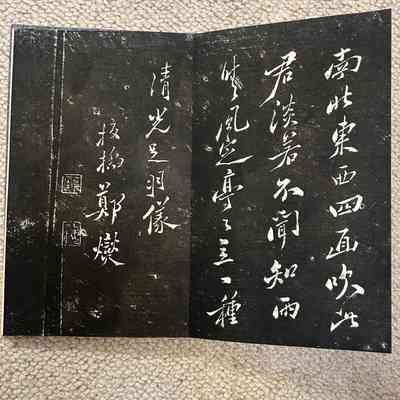 南北東西四面吹此
君淡若不聞知雨
晴風定亭々立一種
清光是羽儀
板橋鄭燮